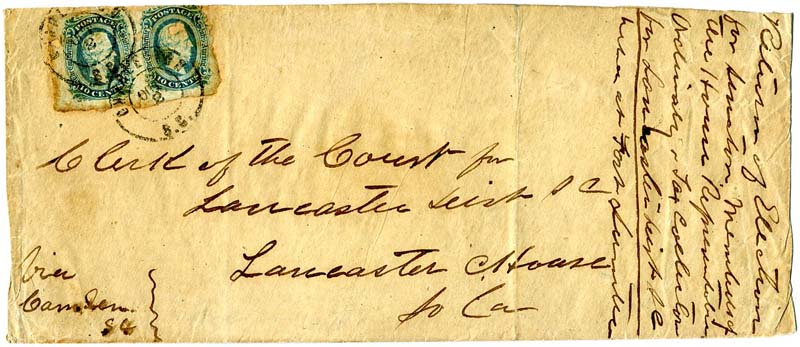 POSTAGE
10 CENTS
POSTAGE
10 CENTS
S.C.
Clerk of the Court for
Lancaster Dist S C
Lancaster C. House
So Ca
via
Camden
S C
Return of Election
for Members of
the House Representatives
Ordinary & Tax Collector
for Lancaster Dist S C
held at Fort Sumter